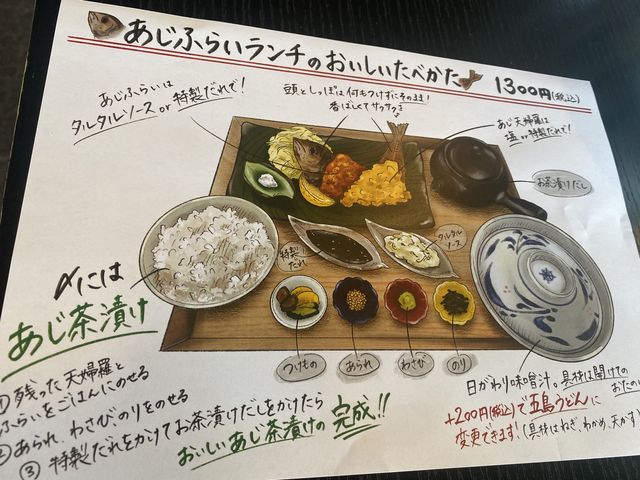 あじふらいランチのおいしいたべかた
1300円(税込)
あじふらいは
タルタルソース or 特製だれで!
頭としっぽは何もつけずにそのまま!
香ばしくてサクサク
あじ天婦羅は
塩 or 特製だれで!
お茶漬けだし
特製
だれ
タルタル
ソース
つけもの
あられ
わさび
のり
〆には
あじ茶漬け
① 残った天婦羅と
ふらいをごはんにのせる
② あられ、わさび、のりをのせる
③ 特製だれをかけてお茶漬けだしをかけたら
おいしいあじ茶漬けの完成!!
日がわり味噌汁。具材は開けての
おたの
+200円(税込)で五島うどんに
変更できます。(具材はねぎ、わかめ、天かす